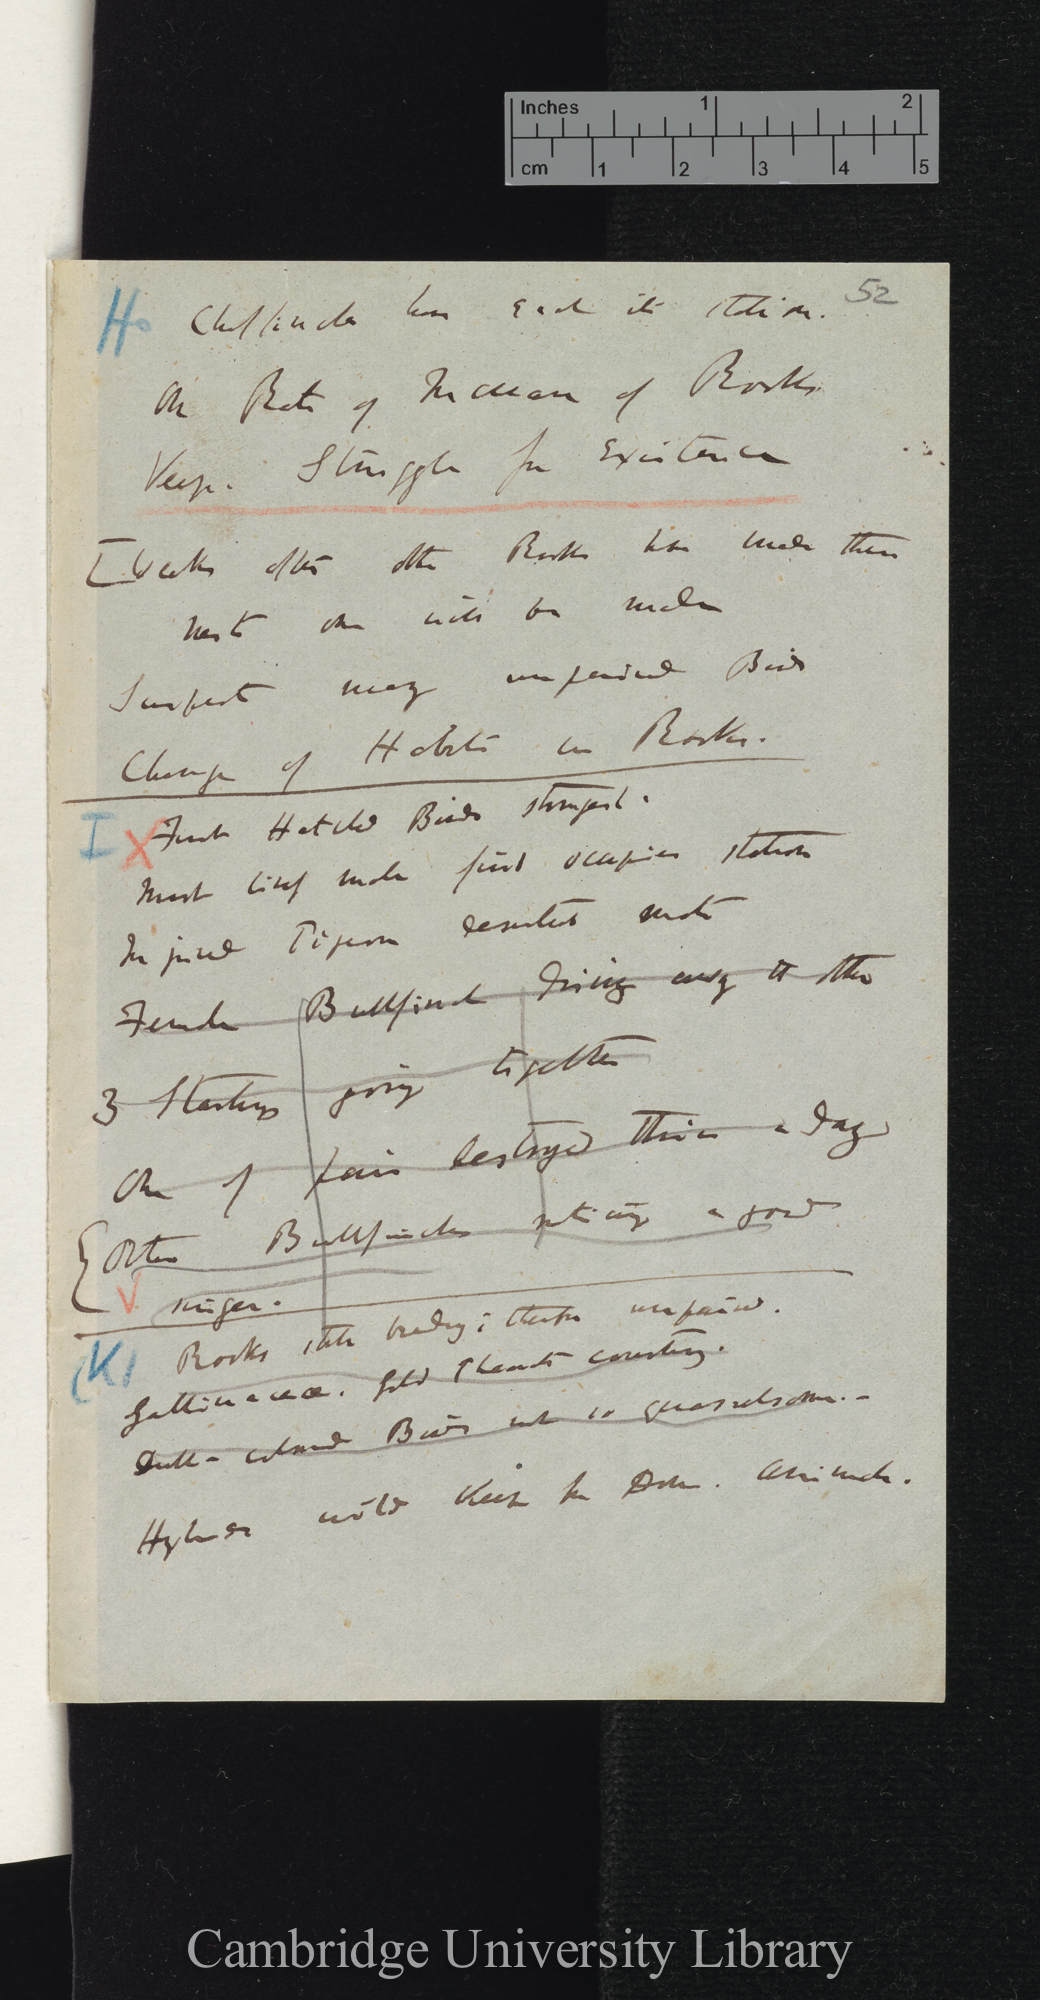 Inches 1 2
cm 1 2 3 4 5
52
H Chaffinch has each its station.
On Rate of Increase of Rooks
Keep. Struggle for Existence
[Weeks after other Rooks have made their
nests one will be made
Suspect many unpaired Birds
Change of Habits in Rooks.
I X First Hatched Birds strongest.
Must first occupies station
Injured Pigeon deserted mate
Female Bullfinch driving away the other
3 Starlings going together
One of pair destroyed thrice a day
{Other Bullfinches noticing a good
singer.
(K) Rooks late breeding; therefore unpaired.
Gallinaceae. Gold Pheasants courting.
Dull-coloured Birds not so quarrelsome.-
Hybrids wild Keep for Dom. Animals.
Cambridge University Library